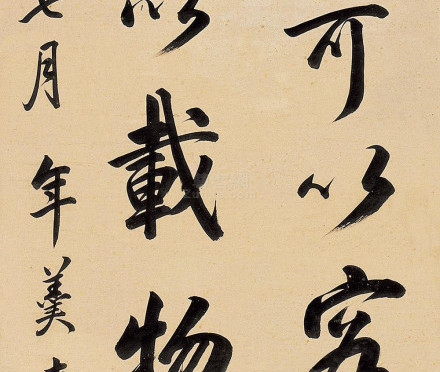 可以容
以載物
七月年羹